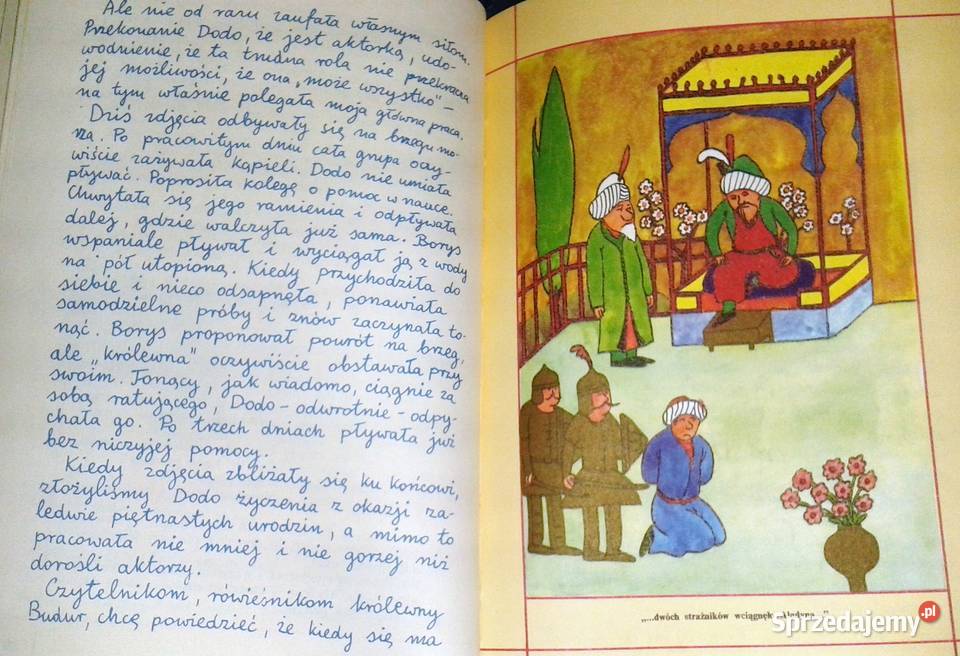 Ale nie od razu zaufała własnym siłom.
Przekonanie Dodo, że jest aktorką, udo-
wodnienie, że ta trudna rola nie przekracza
jej możliwości, że ona „może wszystko” –
na tym właśnie polegała moja główna praca.
Dziś zdjęcia odbywały się na brzegu mo-
rza. Po pracowitym dniu cała grupa oczy-
wiście zażywała kąpieli. Dodo nie umiała
pływać. Poprosiła kolegę o pomoc w nauce.
Chwytała się jego ramienia i odpływała
dalej, gdzie walczyła już sama. Borys
wspaniale pływał i wyciągał ją z wody
na pół utopioną. Kiedy przychodziła do
siebie i nieco odsapnęła, ponawiała
samodzielne próby i znów zaczynała to-
nąć. Borys proponował powrót na brzeg,
ale „królewna” oczywiście obstawała przy
swoim. Tonący, jak wiadomo, ciągnie za
sobą ratującego, Dodo – odwrotnie – odpy-
chała go. Po trzech dniach pływała już
bez niczyjej pomocy.
Kiedy zdjęcia zbliżały się ku końcowi,
złożyliśmy Dodo życzenia z okazji za-
ledwie piętnastych urodzin, a mimo to
pracowała nie mniej i nie gorzej niż
dorośli aktorzy.
Czytelnikom, rówieśnikom królewny
Budur, chcę powiedzieć, że kiedy się ma
„...dwóch strażników wciągnęło
Sprzedajemy.pl